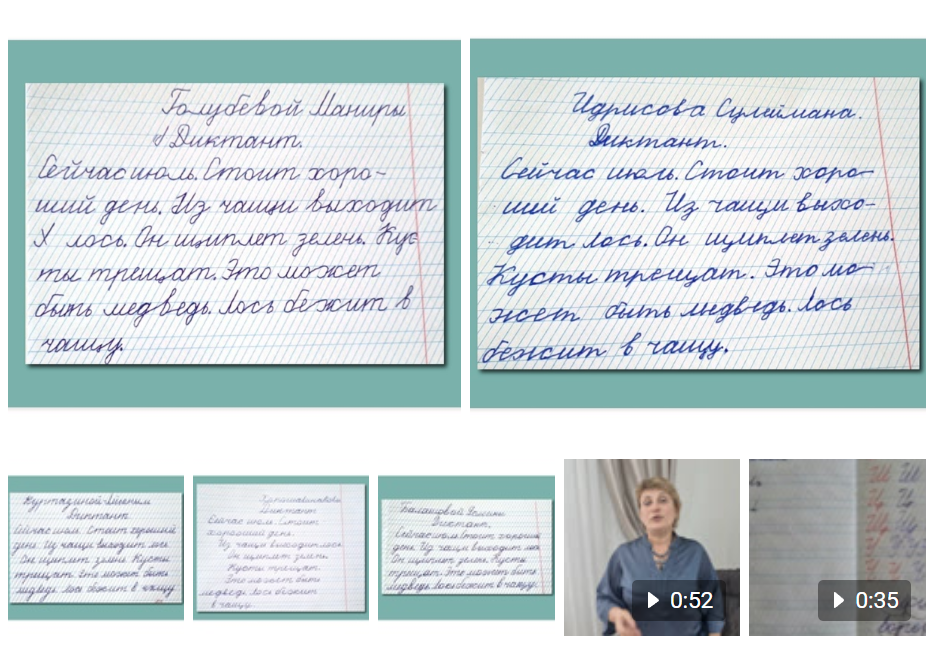 Голубевой Маниры
Диктант.
Сейчас июль. Стоит хоро-
ший день. Из чащи выходит
Х лось. Он щиплет зелень. Кус
ты трещат. Это может
быть медведь. Лось бежит в
чащу.
Идрисова Сулеймана.
Диктант.
Сейчас июль. Стоит хоро-
ший день. Из чащи выхо-
дит лось. Он щиплет зелень.
Кусты трещат. Это мо-
жет быть медведь. Лось
бежит в чащу.
Диктант
Сейчас июль. Стоит хороший
день. Из чащи выходит лось.
Он щиплет зелень. Кусты
трещат. Это может быть
медведь. Лось бежит в чащу
Диктант
Сейчас июль. Стоит
хороший день.
Из чащи выходит лось.
Он щиплет зелень.
Кусты трещат.
Это может быть
медведь. Лось бежит
в чащу.
Диктант.
Сейчас июль. Стоит хороший
день. Из чащи выходит лось.
Он щиплет зелень. Кусты
трещат. Это может быть
медведь. Лось бежит в чащу.
0:52
0:35